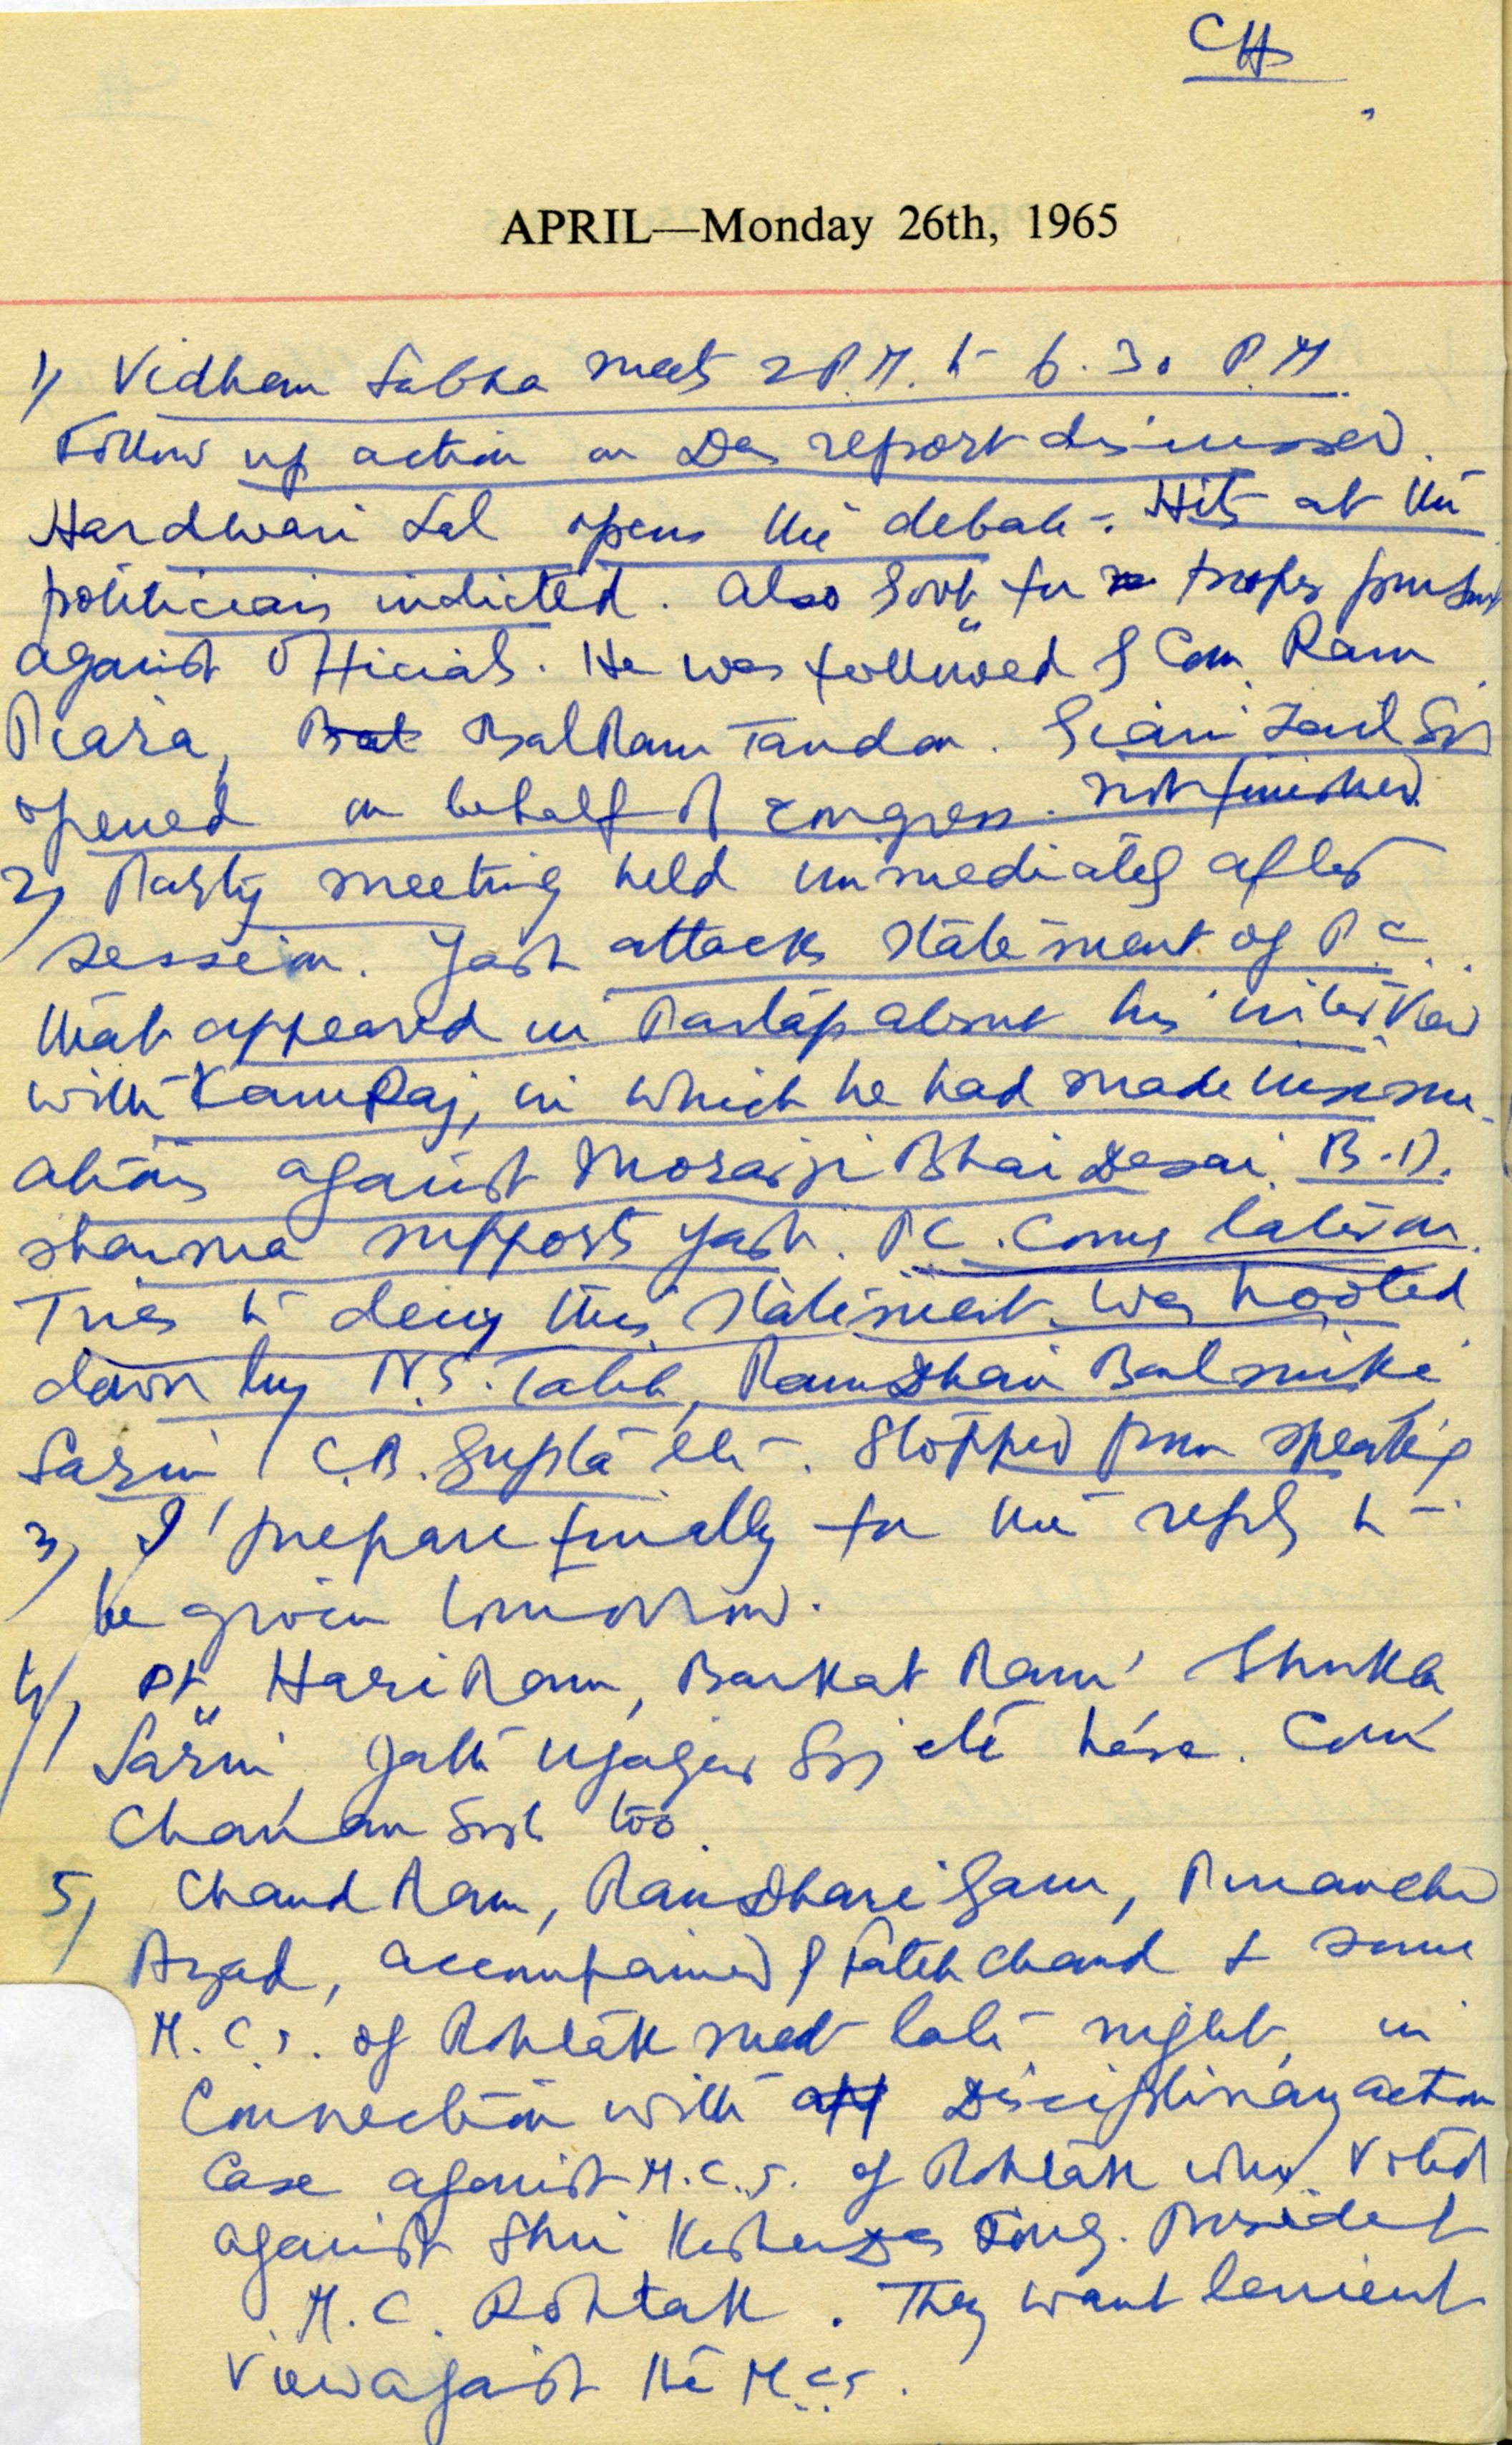 CH
APRIL—Monday 26th, 1965
1) Vidhan Sabha meets 2 P.M. to 6.30 P.M.
Follow up action on Das report discussed.
Hardwari Lal opens the debate. Hits at the
politicians indicted. Also Govt for proper
against officials. He was followed by Com. Ram
Piara, Bal Ram Tandon. Giani Zail Sing
opened on behalf of congress. not finished
2) Party meeting held immediately after
session. Yash attacks statement of P.C.
that appeared in Partap about his interview
with KamRaj, in which he had made insinu-
ations against Morarji Bhai Desai. B.D.
sharma supports Yash. P.C. comes later on.
Tries to deny this statement. Was hooted
down by N.S. Talib, Ram Dhari Balmiki
Sarin, C.B. Gupta etc. Stopped from speaking
3) I prepare finally for the reply to
be given tomorrow.
4) Pt. Hari Ram, Barkat Ram, Shukla
Sarin, Ujagar Sing etc here. Com
Chanan Singh too.
5) Chand Ram, Ram Dhari Gaur,
Azad, accompanied by Fateh chand & some
M.C.s. of Rohtak met late night, in
Connection with Disciplinary action
Case against M.C.s. of Rohtak who voted
against Shri Cong. President
M.C. Rohtak. They want lenient
View against the M.C.s.